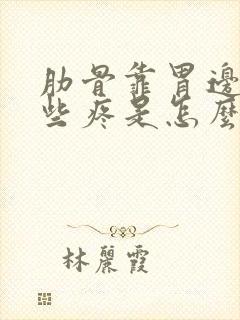 肋骨靠胃邊
些疼是怎麼
林麗霞